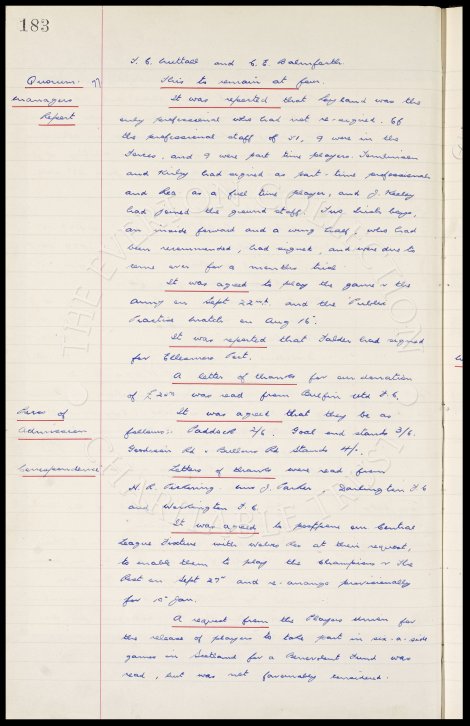 183
T. C. Nuttall and C. E. Balmforth.
Quorum. This to remain at four.
Managers It was reported that Leyland was the
Report only professional who had not re-signed. Of
the professional staff of 51, 9 were in the
Forces, and 9 were part time players. Tomlinson
and Kirby had signed as part-time professionals
and Rea as a full time player, and J. Keeley
had joined the ground staff. Two Irish boys,
an inside forward and a wing half, who had
been recommended, had signed, and were due to
come over for a months trial.
It was agreed to play the game v the
Army on Sept 22nd and the Public
Practice Match on Aug 15.
It was reported that Falder had signed
for Ellesmere Port.
A letter of thanks for our donation
of was read from Utd F.C.
Prices of It was agreed that they be as
Admission follows:- Paddock 2/6. Goal end stands 3/6.
Goodison Rd & Bullens Rd Stands 4/-.
Correspondence Letters of thanks were read from
H. R. Pickering, J. Parker, Darlington F.C
and Workington F.C.
It was agreed to postpone our Central
League Fixture with Wolves Res at their request,
to enable them to play the Champions v The
Rest on Sept 27th and re-arrange provisionally
for Jan.
A request from the Players Union for
the release of players to take part in six-a-side
games in Scotland for a Benevolent Fund was
read, but was not favourably considered.
THE EVERTON COLLECTION
CHARITABLE TRUST